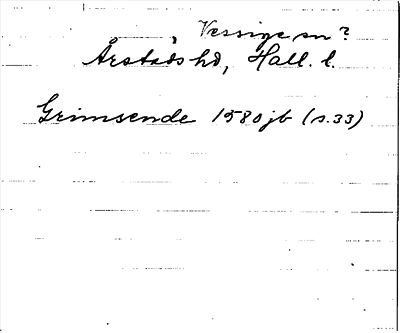 , Vessige sn?
Årstads hd, Hall. l.
Grimsende 1580 jb (s. 33)